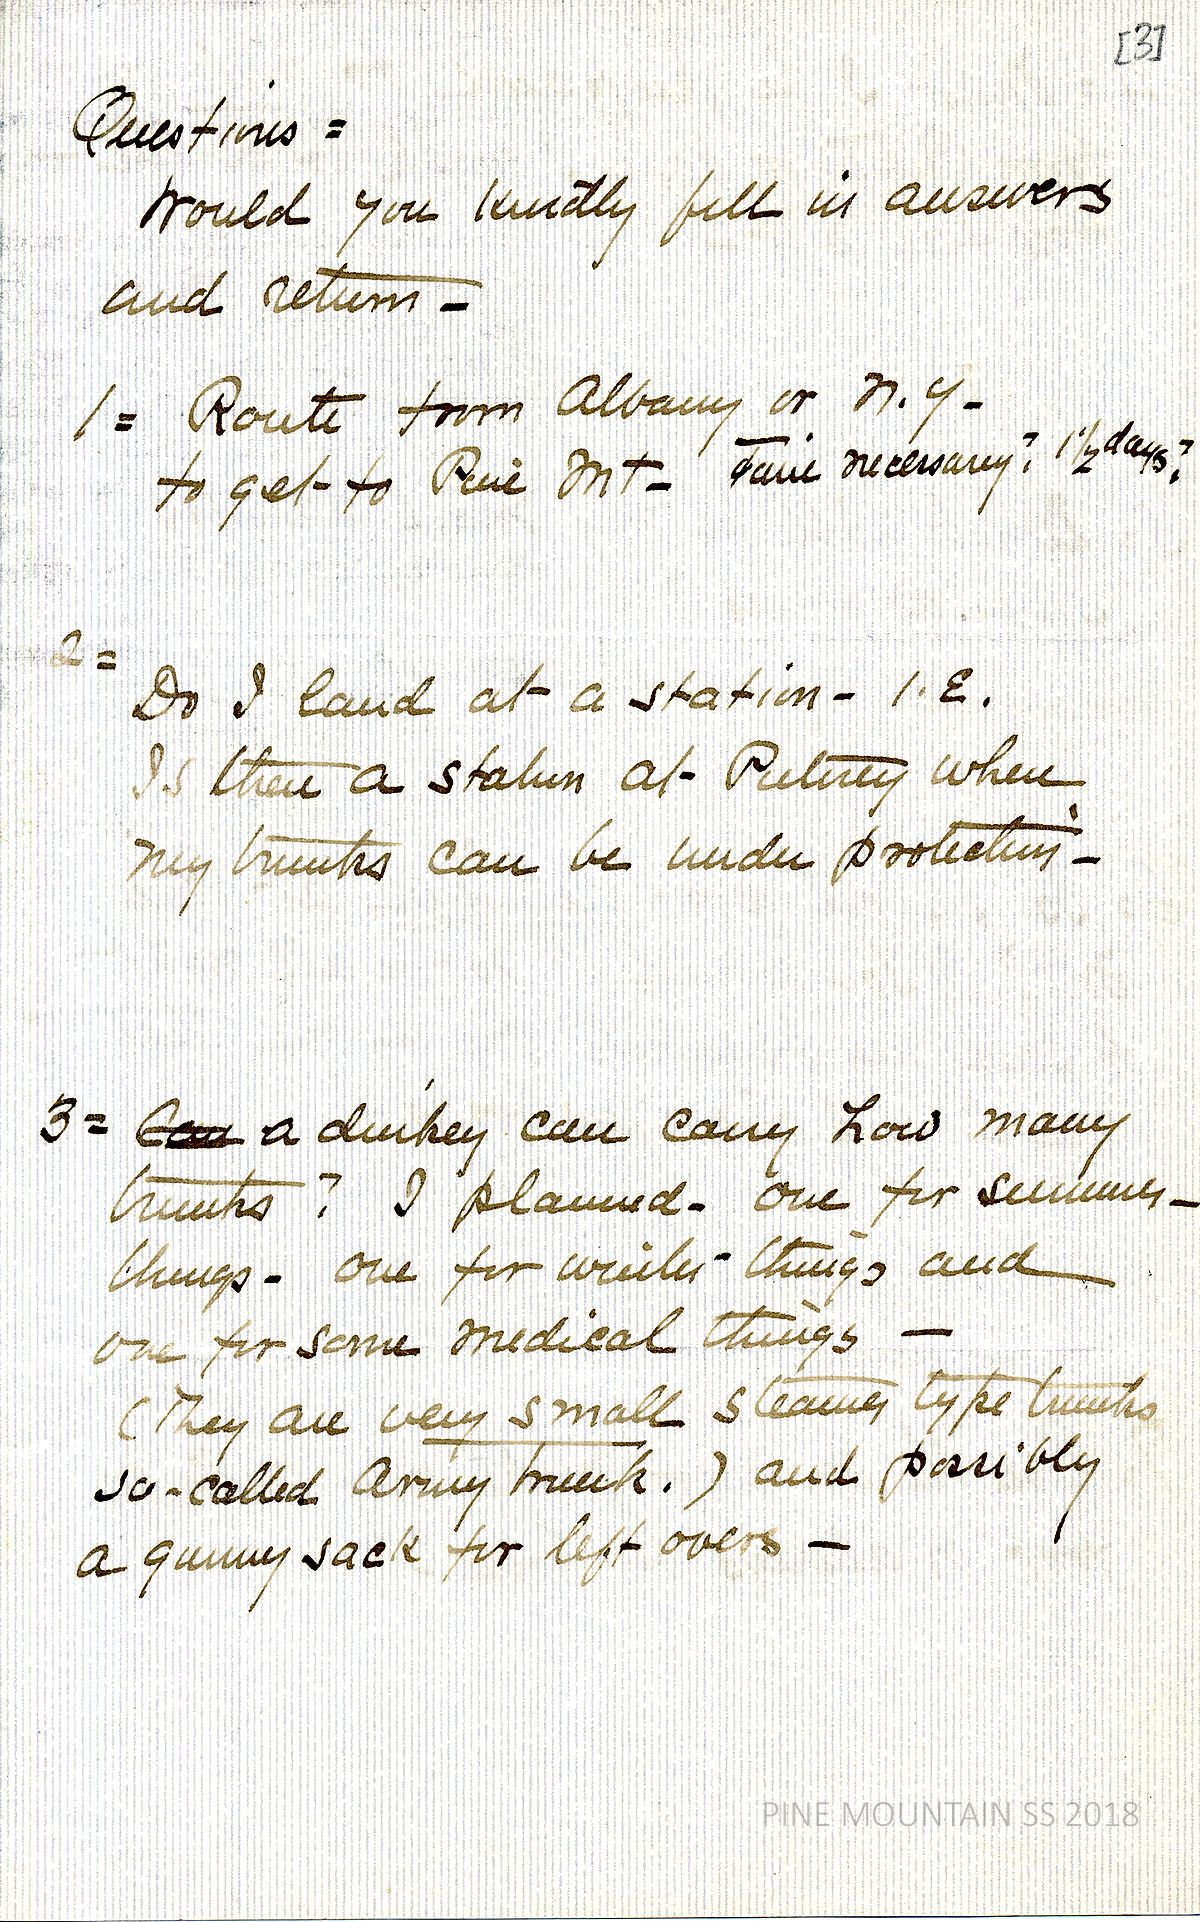 [3]
Questions =
Would you kindly fill in answers
and return -
1 = Route from Albany or N.Y. -
to get to Pine Mt - Time necessary? 1 1/2 days?
2 =
Do I land at a station - I.E.
Is there a station at Putney when
my trunks can be under protection -
3 = Can a donkey can carry how many
trunks? I planned - one for summer -
things - one for winter - things and
one for some medical things —
(They are very small steamer type trunks
so-called Army trunk.) and possibly
a gunny sack for left overs —
PINE MOUNTAIN SS 2018